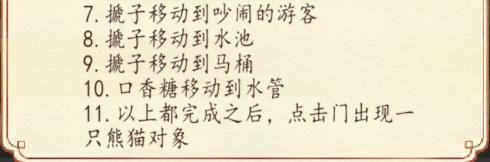 7. 搋子移动到吵闹的游客
8. 搋子移动到水池
9. 搋子移动到马桶
10. 口香糖移动到水管
11. 以上都完成之后，点击门出现一
只熊猫对象